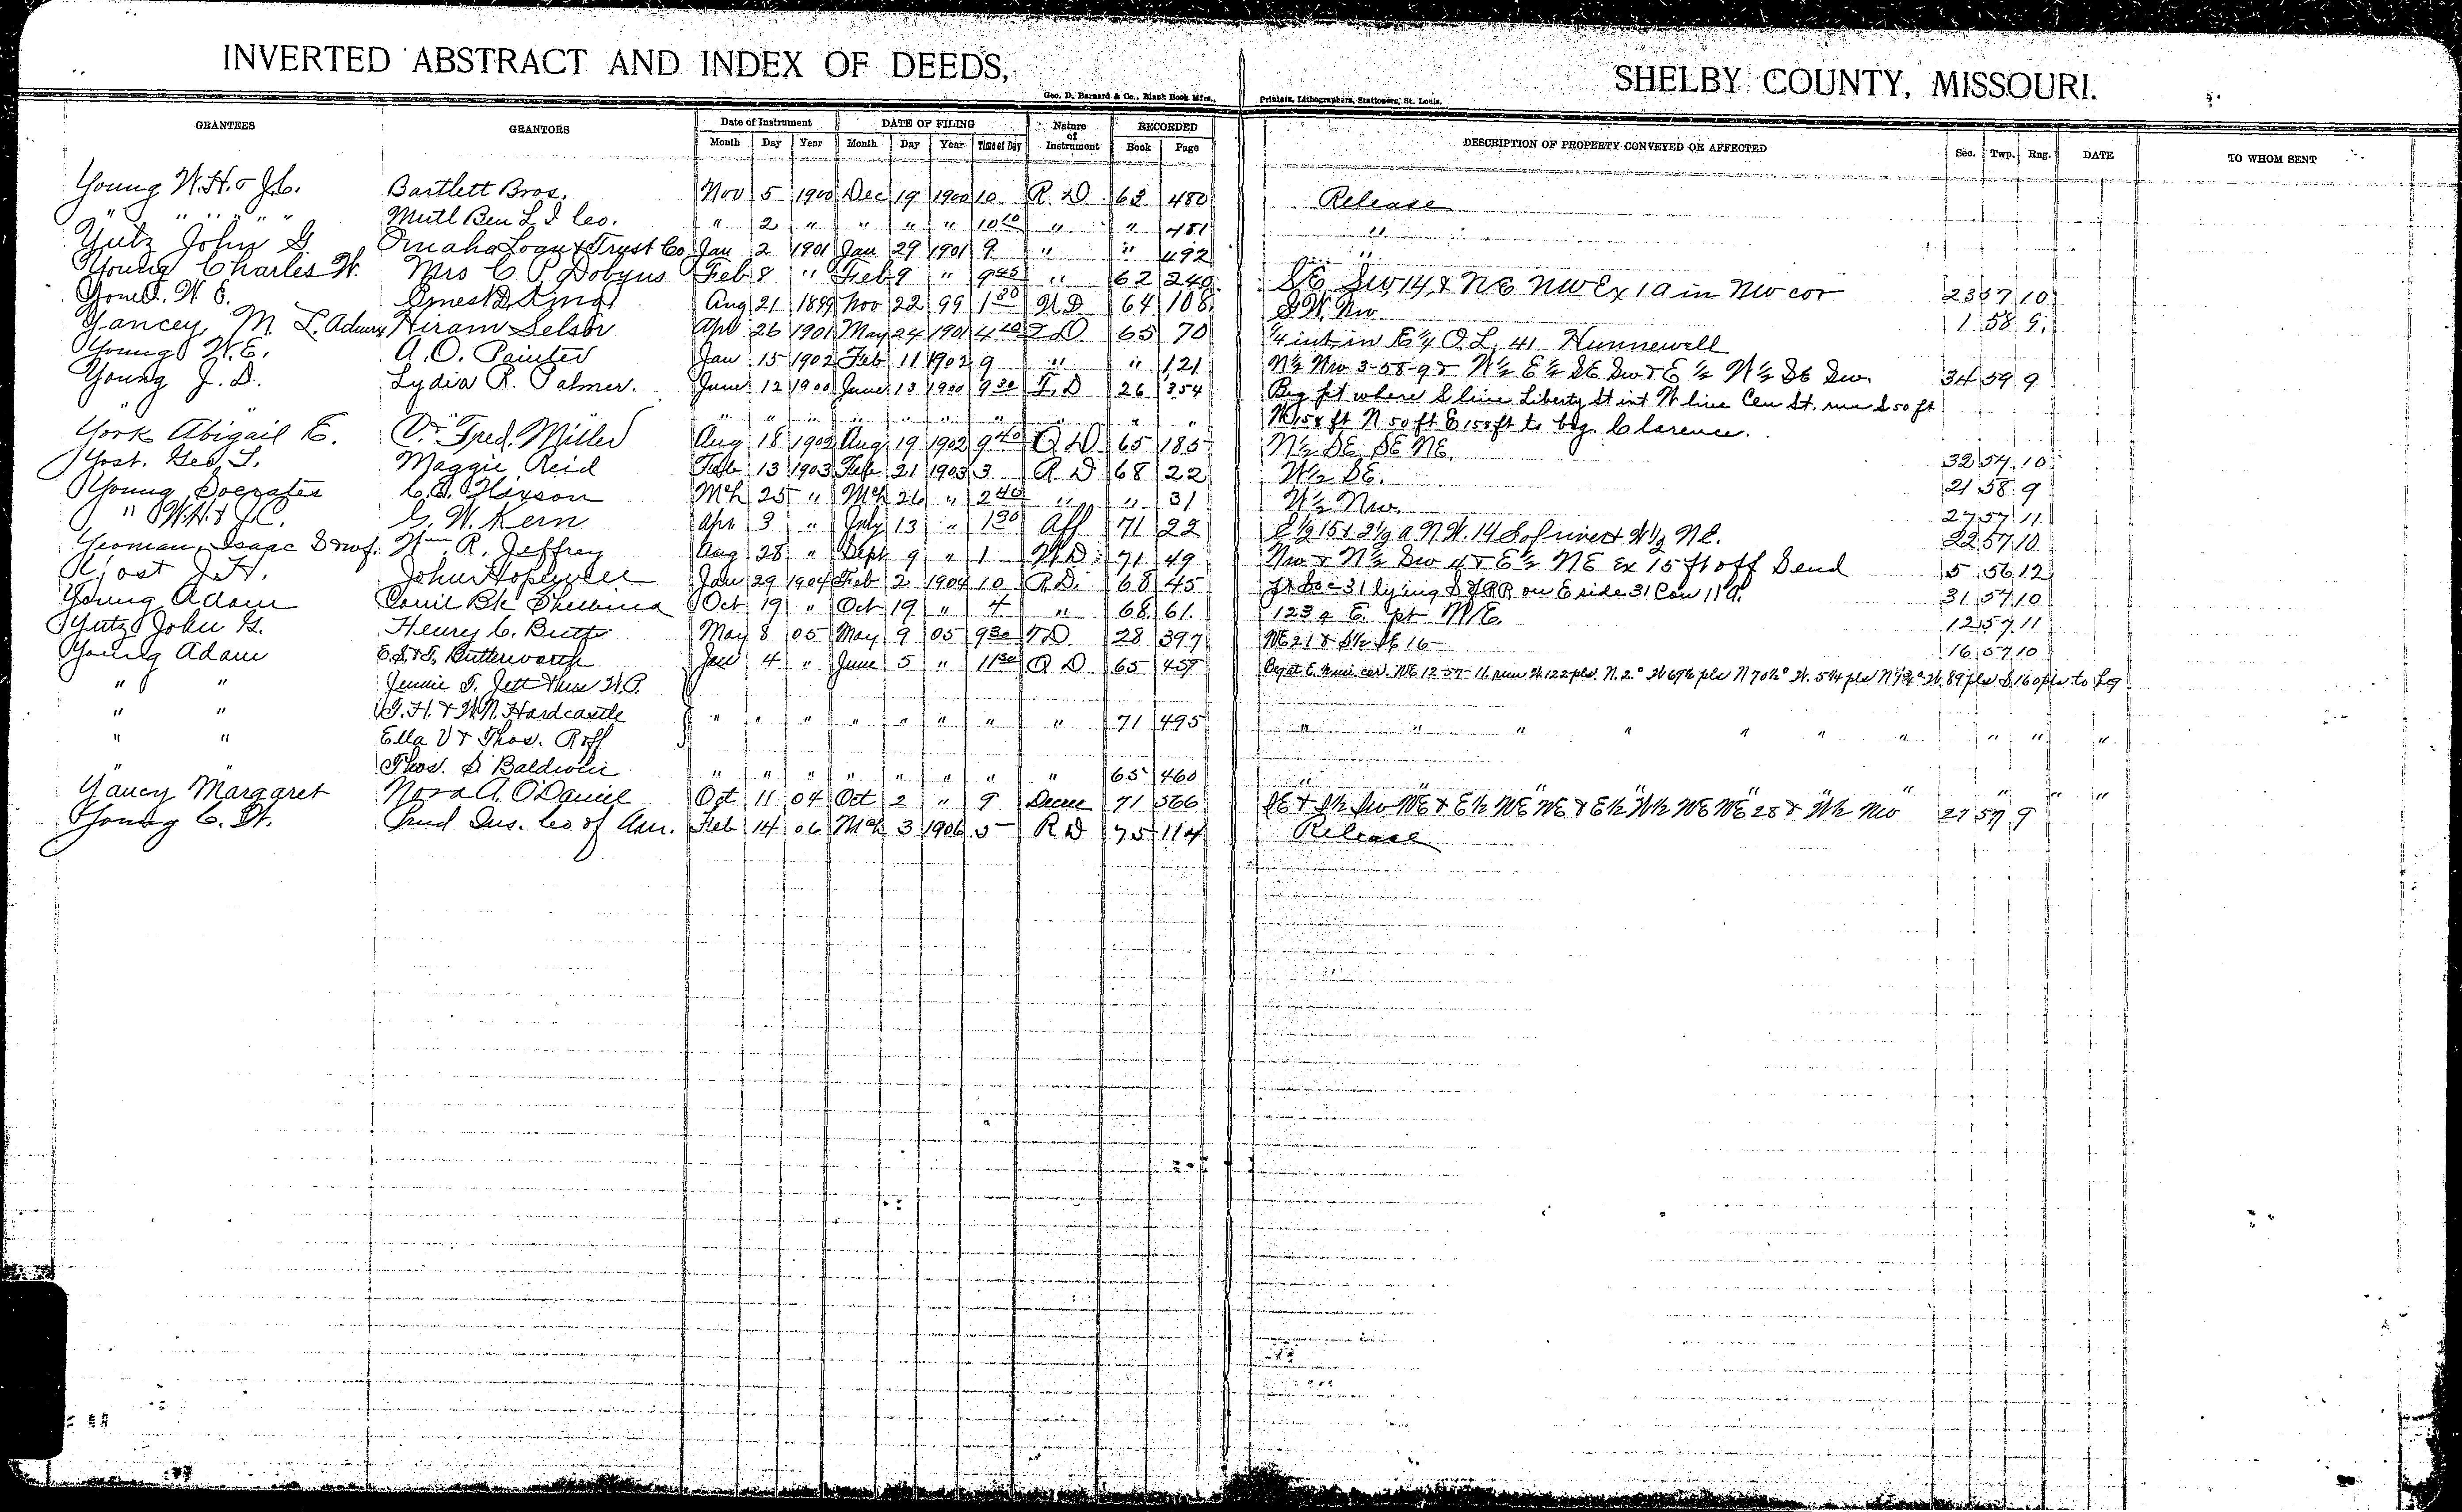 INVERTED ABSTRACT AND INDEX OF DEEDS, SHELBY COUNTY, MISSOURI.
Geo. D. Barnard & Co., Blank Book Mfrs., Printers, Lithographers, Stationers, St. Louis.
GRANTEES GRANTORS Date of Instrument DATE OF FILING Nature of Instrument RECORDED DESCRIPTION OF PROPERTY CONVEYED OR AFFECTED Sec. Twp. Rng. DATE TO WHOM SENT
Month Day Year Month Day Year Time of Day Book Page
Young W. H. & J. C. Bartlett Bros. Nov 5 1900 Dec 19 1900 10 R D 62 480 Release
" " " " " Mutl Ben L I Co. " 2 " " " " 10 10 " " 481 "
Yutz John G Omaha Loan & Trust Co Jan 2 1901 Jan 29 1901 9 " " 492 "
Young Charles W. Mrs C P Dobyns Feb 8 " Feb 9 " 9 45 " 62 240 SE SW 14 & NE NW Ex 1 a in NW cor 23 57 10
W. E. Ernest D. King Aug 21 1899 Nov 22 99 1 30 W D 64 108 S W. Nw 1 58 9
Yancey M. L. Hiram Selsor Apr 26 1901 May 24 1901 4 40 65 70 1/4 int in O. L. 41 Hunnewell
Young W. E. A. O. Painter Jan 15 1902 Feb 11 1902 9 " " 121 N½ Nw 3-58-9 & W½ E½ SE Sw & E½ W½ SE Sw. 34 59 9
Young J. D. Lydia R. Palmer. June 12 1900 June 13 1900 9 30 26 354 Beg pt where S line Liberty St int W line Cen St. run S 50 ft
" " " " " " " " " " " " W 158 ft N 50 ft E 158 ft to beg. Clarence.
York Abigail E. Dr Fred. Miller Aug 18 1902 Aug 19 1902 9 40 Q D 65 185 N½ SE SE NE. 32 57 10
Yost, Geo. T. Maggie Reid Feb 13 1903 Feb 21 1903 3 R D 68 22 W½ SE. 21 58 9
Young Socrates Hixson Mch 25 " Mch 26 " 2 40 " " 31 W½ Nw. 27 57 11
" W. H. & J. C. G. W. Kern Apr 3 " July 13 " 1 30 Aff 71 22 22 57 10
Yeoman, Isaac Wm R. Jeffrey Aug 28 " Sept 9 " 1 W D. 71 49 Nw & N½ Sw 4 & E½ NE Ex 15 ft off S end 5 56 12
Yost J. H. John Hopewell Jan 29 1904 Feb 2 1904 10 R D. 68 45 Sec 31 lying S RR on E side 31 Con 11 a. 31 57 10
Young Adam Com'l Bk Shelbina Oct 19 " Oct 19 " 4 " 68 61. 123 a E. pt N/E. 12 57 11
Yutz John G. Henry C. Butts May 8 05 May 9 05 9 30 28 397 NE 21 & S½ SE 16 16 57 10
Young Adam Butterworth Jan 4 " June 5 " 11 30 Q D 65 459 NE 12-57-11, run W. 122 pls. N. 2° W 69½ pls N 70½° W. 5¼ pls W. 89 pls S 160 pls to beg
" " Jennie T. Jett
" " & W. N. Hardcastle " " " " " " " " 71 495 " " " " " " " " " "
" " Ella V & Thos. Roff
" Thos. S. Baldwin " " " " " " " " 65 460 " " " " " "
Yancy Margaret Nora A. O'Daniel Oct 11 04 Oct 2 " 9 Decree 71 566 SE & S½ Sw NE & E½ NE NE & E½ W½ NE NE 28 & W½ Nw 27 57 9
Young C. H. Prud Ins. Co of Am. Feb 14 06 Mch 3 1906 5 R D 75 114 Release